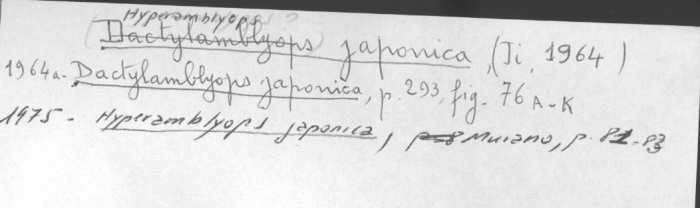 Hyperamblyops
(Dactylamblyops) japonica, (Ii, 1964)
1964a. Dactylamblyops japonica, p. 293, fig. 76 A-K
1975 - Hyperamblyops japonica, Murano, p. 81-83